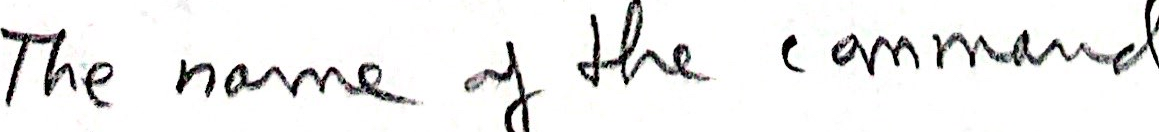 The name of the command